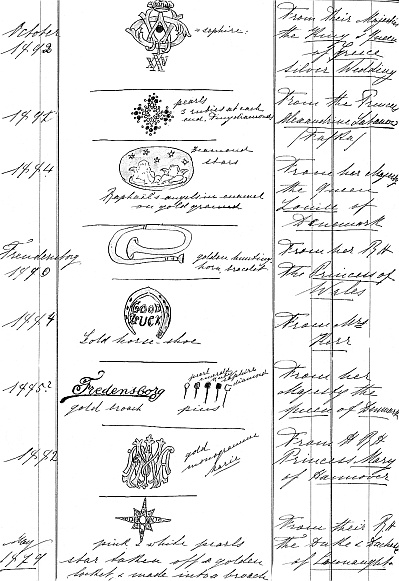 October
1892
saphire.
From their Majesties
the King & Queen
of Greece
Silver Wedding
189
pearls
3 rubies at each
end. Tiny diamonds
From the Princess
Alexandrine Labanow
1884
diamond
stars
Raphael's angels in enamel
on gold ground
From her Majesty
the Queen
Louise of
Denmark
Fredensborg
1890
golden hunting
horn bracelet
From her R H
the Princess of
Wales
GOOD
LUCK
Gold horse-shoe
From Mrs
Kerr
1885?
Fredensborg
gold broach
pearl
saphire
diamond
pins
From her
Majesty the
queen of Denmark
1882
gold
monogramme
Marie
From H R H
Princess Mary
of Hannover
May
1879
pink & white pearls
star taken off a golden
locket, & made into a broach
From their R H
the Duke & Duchess
of Connaught